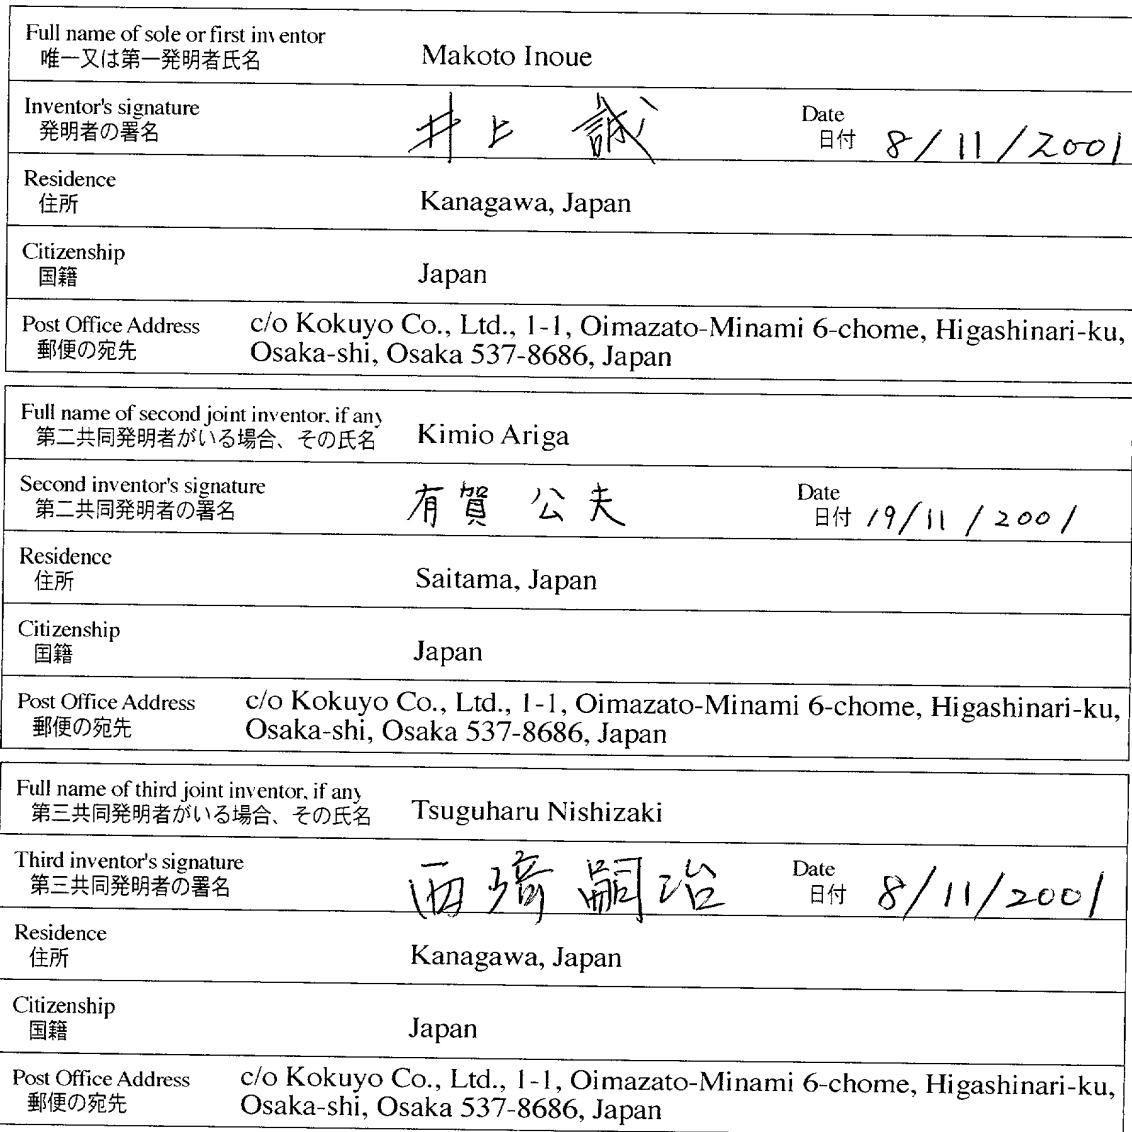 Full name of sole or first inventor
唯一又は第一発明者氏名
Makoto Inoue
Inventor's signature
発明者の署名
井上 誠
Date
日付 8/11/2001
Residence
住所
Kanagawa, Japan
Citizenship
国籍
Japan
Post Office Address
郵便の宛先
c/o Kokuyo Co., Ltd., 1-1, Oimazato-Minami 6-chome, Higashinari-ku,
Osaka-shi, Osaka 537-8686, Japan
Full name of second joint inventor, if any
第二共同発明者がいる場合、その氏名
Kimio Ariga
Second inventor's signature
第二共同発明者の署名
有賀 公夫
Date
日付 19/11/2001
Residence
住所
Saitama, Japan
Citizenship
国籍
Japan
Post Office Address
郵便の宛先
c/o Kokuyo Co., Ltd., 1-1, Oimazato-Minami 6-chome, Higashinari-ku,
Osaka-shi, Osaka 537-8686, Japan
Full name of third joint inventor, if any
第三共同発明者がいる場合、その氏名
Tsuguharu Nishizaki
Third inventor's signature
第三共同発明者の署名
西崎 嗣治
Date
日付 8/11/2001
Residence
住所
Kanagawa, Japan
Citizenship
国籍
Japan
Post Office Address
郵便の宛先
c/o Kokuyo Co., Ltd., 1-1, Oimazato-Minami 6-chome, Higashinari-ku,
Osaka-shi, Osaka 537-8686, Japan